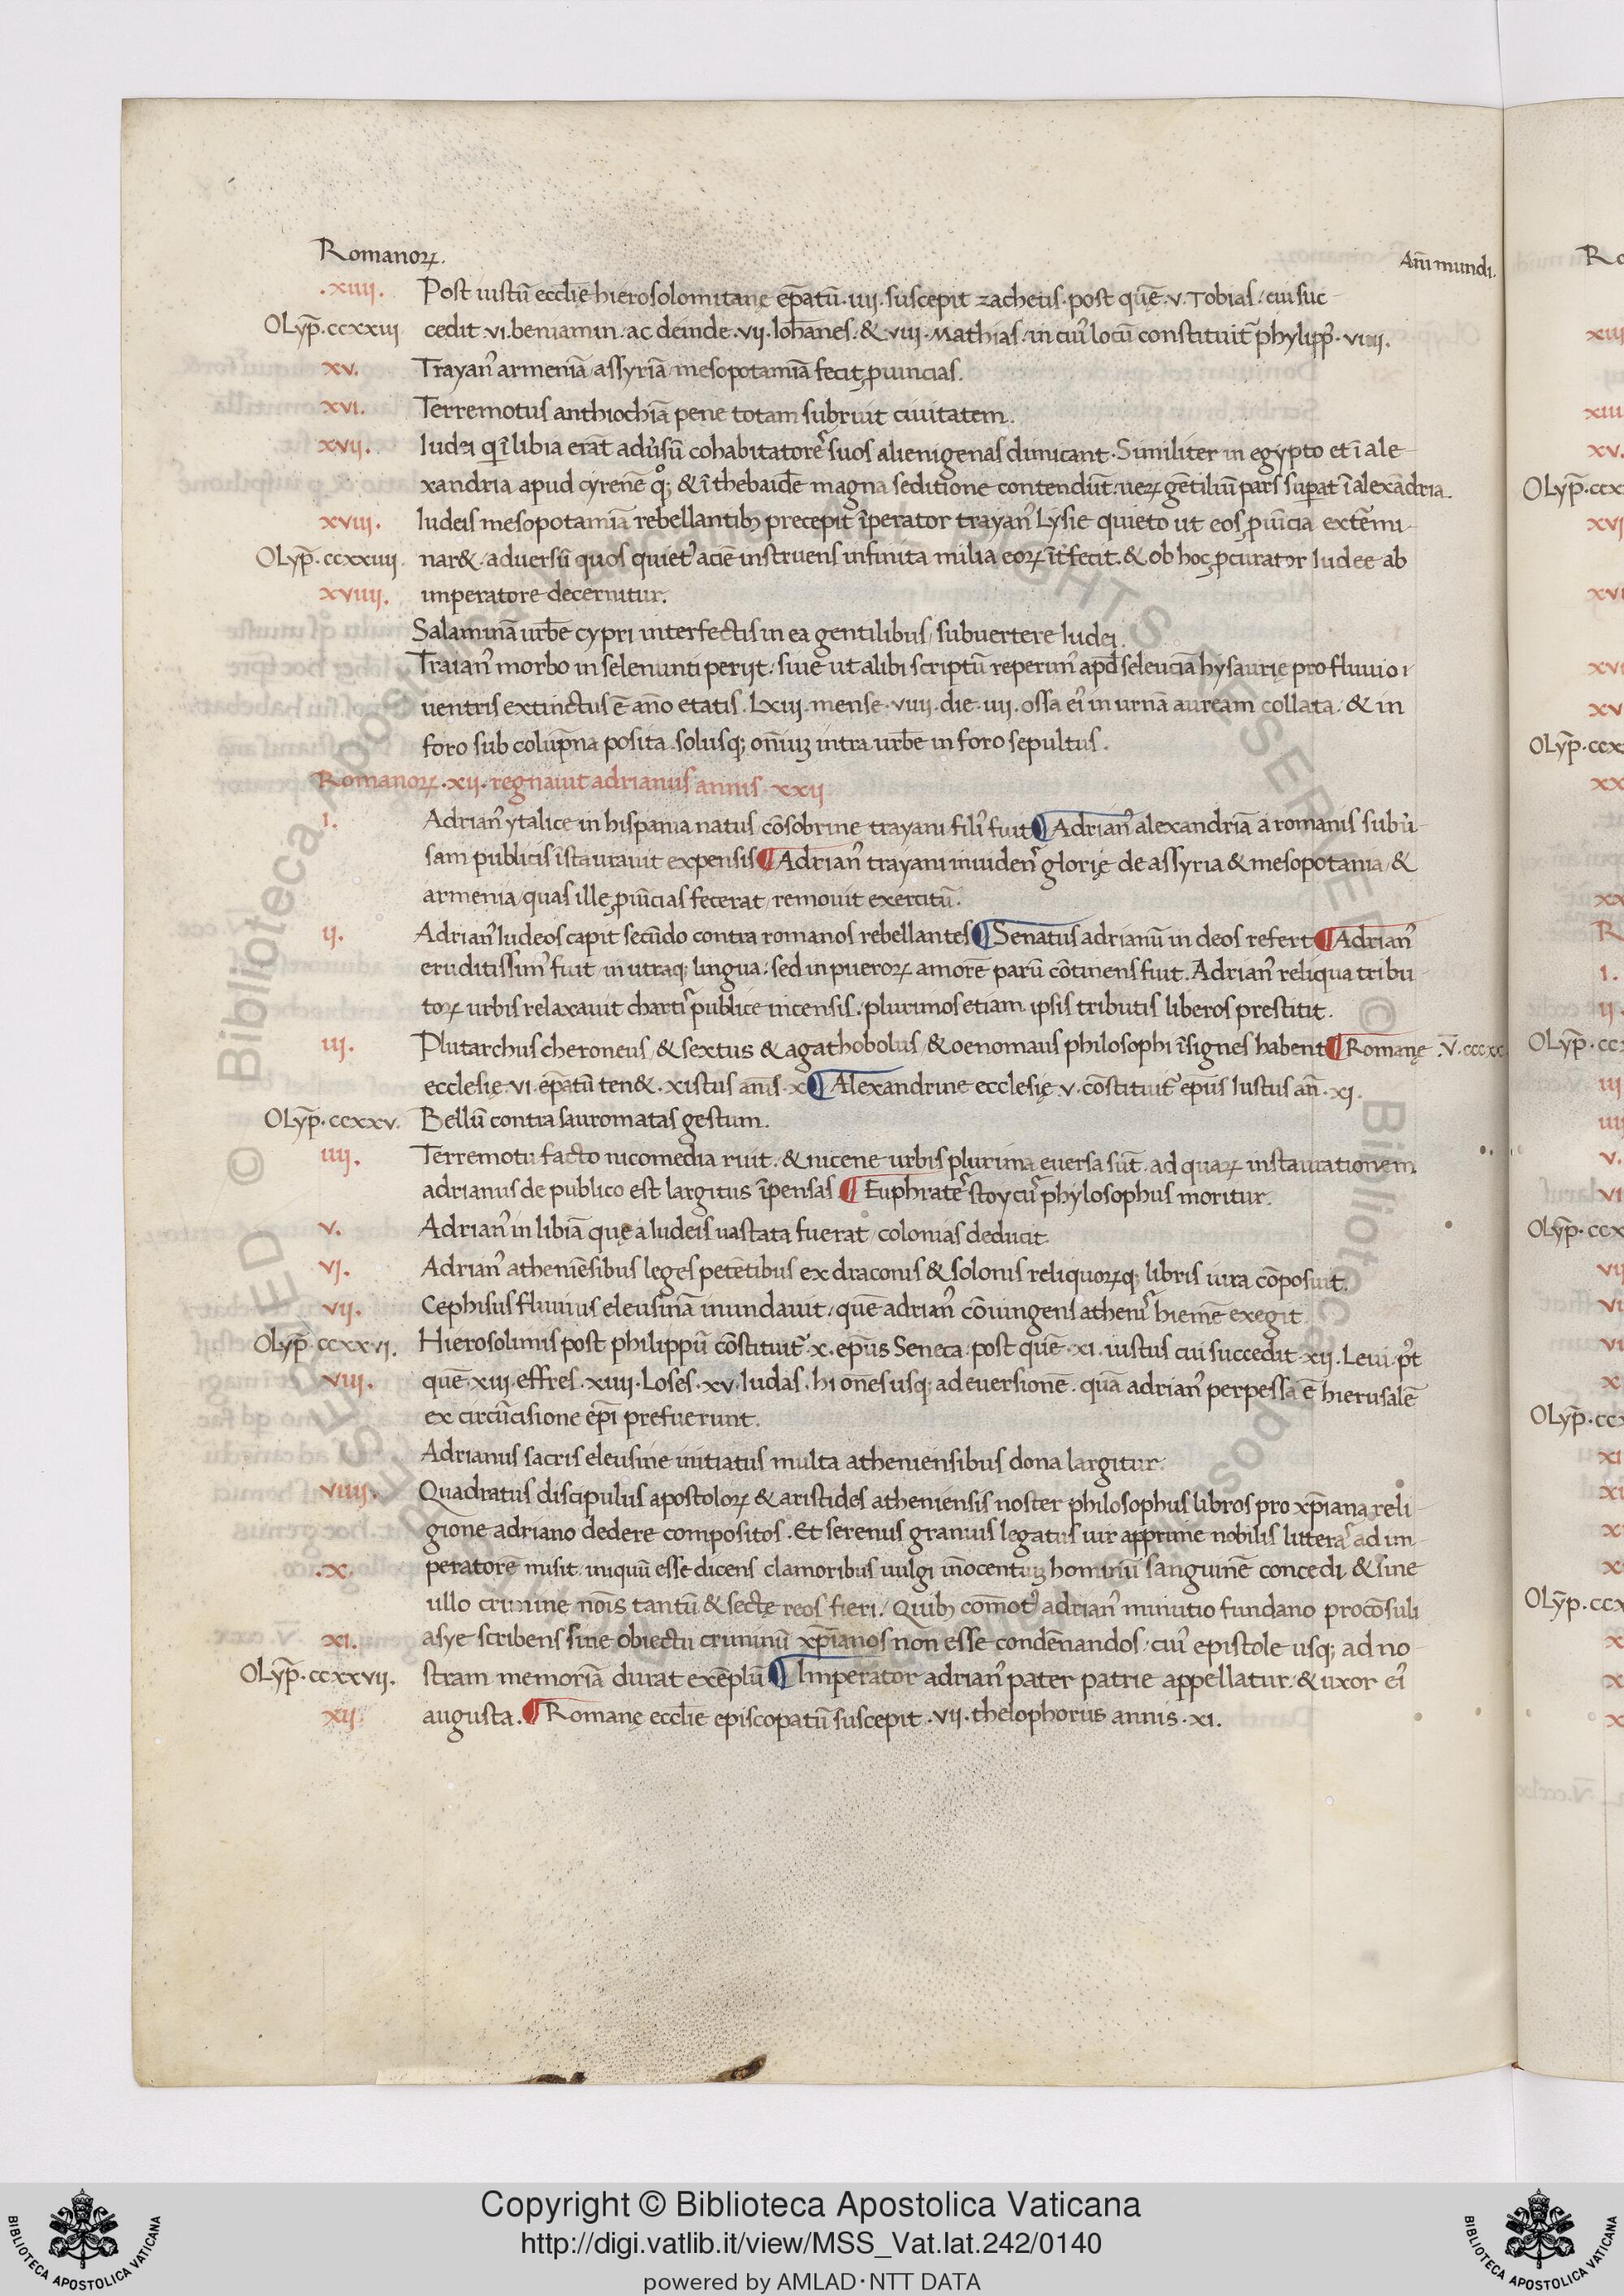 Romanoꝝ.
Añi mundi.
.xiiii. Post iustū ecclīe hierosolomitane ep̄atū .iiii. suscepit zacheus. post quē .v. Tobias. cui suc-
OLyp̄. ccxxiii cedit .vi. beniamin. ac deinde .vii. Ioh̄anes. & viii. Mathias. in cuiꝰ locū constituit᷑ phylippꝰ. viiii.
xv. Trayanꝰ armeniā assyriā mesopotamiā fecit ꝓuincias.
xvi. Terremotus anthiochiā pene totam subruit ciuitatem.
xvii. Iudei qi ī libia erāt adꝰsū cohabitatorēs suos alienigenas dimicant. Similiter in egypto et ī ale-
xandria apud cyrenē qͦꝫ & ī thebaide magna seditione contendūt. ueꝝ gētiliū pars suꝑat ī alexādria.
xviii. Iudeis mesopotamiā rebellantibꝫ precepit īperator trayanꝰ Lysie quieto ut eos ꝓuīcia extēmi-
OLyp̄. ccxxiiii. nar&. aduersū quos quietꝰ aciē instruens infinita milia eoꝝ īt̄fecit. & ob hoc ꝓcurator Iudee ab
xviiii. imperatore decernitur.
Salaminā urbē cypri interfectis in ea gentilibus subuertere Iudei.
Traianꝰ morbo in selenunti perijt. siue ut alibi scriptū reperimꝰ apd̄ seleuciā hysaurię profluuio
uentris extinctus ē año etatis. Lxiii. mense. viiii. die. iiii. ossa eiꝰ in urnā auream collata. & in
foro sub colūpna posita. solusqꝫ om̄iuꝫ intra urbē in foro sepultus.
Romanoꝝ .xii. regnauit adrianus annis xxii
i. Adrianꝰ ytalice in hispania natus cōsobrine trayani filiꝰ fuit ¶ Adrianꝰ alexandriā a romanis subuꝰ-
sam publicis īstaurauit expensis ¶ Adrianꝰ trayani inuidenꝰ glorię de assyria & mesopotania &
armenia quas ille ꝓuīcias fecerat remouit exercitū.
ij. Adrianꝰ Iudeos capit secūdo contra romanos rebellantes ¶ Senatus adrianū in deos refert ¶ Adrianꝰ
eruditissimꝰ fuit in utraqꝫ lingua. sed in pueroꝝ amorē parū cōtinens fuit. Adrianꝰ reliqua tribu-
toꝝ urbis relaxauit chartiˢ publice incensis. plurimos etiam ipsis tributis liberos prestitit.
iij. Plutarchus cheroneus & sextus & agathobolus & oenomaus philosophi īsignes habent᷑ ¶ Romanę .V̄. cccxx
ecclesię .vi. ep̄atū ten&. xistus añis. x ¶ Alexandrine ecclesię .v. cōstituit᷑ ep̄us Iustus añ. xj.
OLyp̄. ccxxv. Bellū contra sauromatas gestum.
iiij. Terremotu facto nicomedia ruit. & nicene urbis plurima euersa sūt. ad quaꝝ instaurationem
adrianus de publico est largitus īpensas ¶ Euphrateˢ stoycuˢ phylosophus moritur.
v. Adrianꝰ in libiā quę a Iudeis uastata fuerat colonias deducit.
vj. Adrianꝰ atheniēsibus leges petētibus ex draconis & solonis reliquoꝝqꝫ libris iura cōposuit.
vij. Cephisus fluuius eleusinā inundauit. quē adrianꝰ cōiungens atheniˢ hiemē exegit
OLyp̄. ccxxvj. Hierosolimis post philippū cōstituit᷑ .x. ep̄us Seneca. post quē .xi. iustus cui succedit .xij. Leui. pꝰt
viij. quē .xiij. effres. xiiij. Loses. xv. Iudas. hi om̄es usqꝫ ad euersionē. quā adrianꝰ perpessa ē hierusalē
ex circūcisione ep̄i prefuerunt.
Adrianus sacris eleusine initiatus multa atheniensibus dona largitur.
viiij. Quadratus discipulus apostoloꝝ & aristides atheniensis noster philosophus libros pro xp̄iana reli-
gione adriano dedere compositos. Et serenus granius legatus uir apprime nobilis litteraˢ ad im-
.x. peratore misit. iniquū esse dicens clamoribus uulgi īnocentiuꝫ hominū sanguinē concedi & sine
ullo crimine nōis tantū & sectę reos fieri. Quibꝫ com̄otꝰ adrianꝰ minutio fundano procōsuli
xi. asye scribens sine obiectu criminū xp̄ianos non esse condēnandos. cuiꝰ epistole usqꝫ ad no-
OLyp̄. ccxxvii. stram memoriā durat exēplū ¶ Imperator adrianꝰ pater patrie appellatur. & uxor eiꝰ
xij. augusta. ¶ Romanę ecclīe episcopatū suscepit .vii. thelophorus annis. xi.
Copyright © Biblioteca Apostolica Vaticana
http://digi.vatlib.it/view/MSS_Vat.lat.242/0140
powered by AMLAD·NTT DATA
BIBLIOTECA APOSTOLICA VATICANA
BIBLIOTECA APOSTOLICA VATICANA